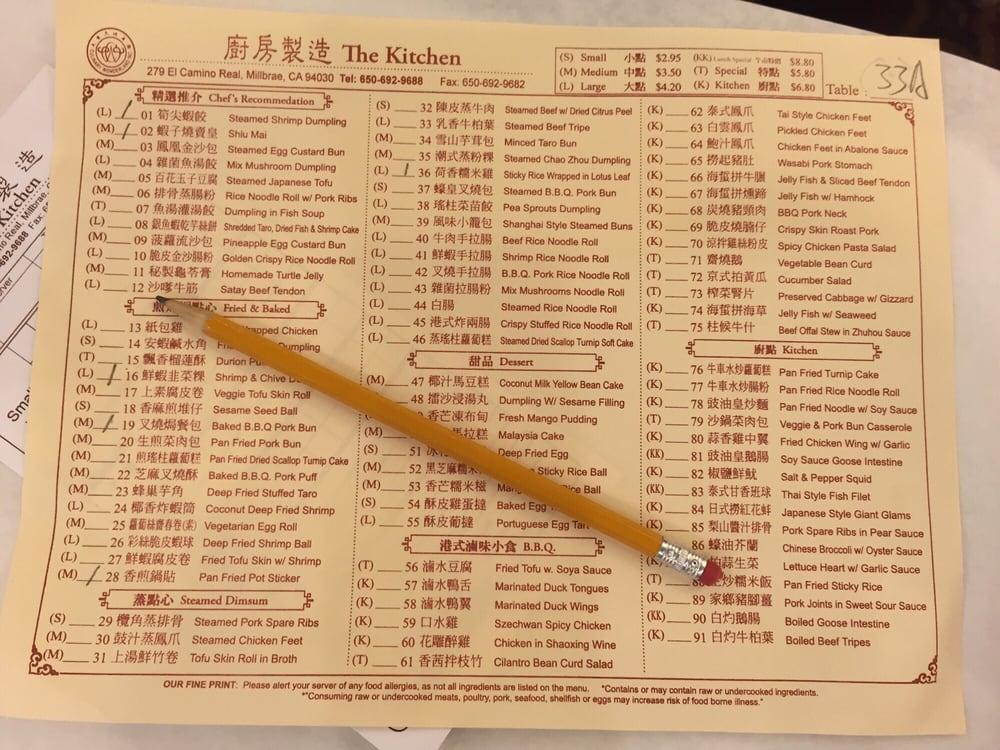 廚房製造 The Kitchen
279 El Camino Real, Millbrae, CA 94030 Tel: 650-692-9688 Fax: 650-692-9682
(S) Small 小點 $2.95 (KK) Lunch Special 午市特價 $8.80
(M) Medium 中點 $3.50 (T) Special 特點 $5.80
(L) Large 大點 $4.20 (K) Kitchen 廚點 $6.80
Table : 33A
精選推介 Chef's Recommedation
(L) / 01 筍尖蝦餃 Steamed Shrimp Dumpling
(M) / 02 蝦子燒賣皇 Shiu Mai
(M) 03 鳳凰金沙包 Steamed Egg Custard Bun
(L) 04 雜菌魚湯餃 Mix Mushroom Dumpling
(M) 05 百花玉子豆腐 Steamed Japanese Tofu
(M) 06 排骨蒸腸粉 Rice Noodle Roll w/ Pork Ribs
(T) 07 魚湯灌湯餃 Dumpling in Fish Soup
(L) 08 銀魚蝦乾芋絲餅 Shredded Taro, Dried Fish & Shrimp Cake
(M) 09 菠蘿流沙包 Pineapple Egg Custard Bun
(L) 10 脆皮金沙腸粉 Golden Crispy Rice Noodle Roll
(M) 11 秘製龜苓膏 Homemade Turtle Jelly
(L) 12 沙嗲牛筋 Satay Beef Tendon
點心 Fried & Baked
(L) 13 紙包雞 Wrapped Chicken
(S) 14 安蝦鹹水角 Dumpling
(T) 15 飄香榴蓮酥 Durion
(L) / 16 鮮蝦韭菜粿 Shrimp & Chive
(M) 17 上素腐皮卷 Veggie Tofu Skin Roll
(S) 18 香麻煎堆仔 Sesame Seed Ball
(M) / 19 叉燒焗餐包 Baked B.B.Q Pork Bun
(M) 20 生煎菜肉包 Pan Fried Pork Bun
(M) 21 煎瑤柱蘿蔔糕 Pan Fried Dried Scallop Turnip Cake
(M) 22 芝麻叉燒酥 Baked B.B.Q. Pork Puff
(M) 23 蜂巢芋角 Deep Fried Stuffed Taro
(L) 24 椰香炸蝦筒 Coconut Deep Fried Shrimp
(M) 25 蘿蔔絲齋春卷(素) Vegetarian Egg Roll
(L) 26 彩絲脆皮蝦球 Deep Fried Shrimp Ball
(L) 27 鮮蝦腐皮卷 Fried Tofu Skin w/ Shrimp
(M) / 28 香煎鍋貼 Pan Fried Pot Sticker
蒸點心 Steamed Dimsum
(S) 29 欖角蒸排骨 Steamed Pork Spare Ribs
(M) 30 鼓汁蒸鳳爪 Steamed Chicken Feet
(M) 31 上湯鮮竹卷 Tofu Skin Roll in Broth
(S) 32 陳皮蒸牛肉 Steamed Beef w/ Dried Citrus Peel
(L) 33 乳香牛柏葉 Steamed Beef Tripe
(M) 34 雪山芋茸包 Minced Taro Bun
(M) 35 潮式蒸粉粿 Steamed Chao Zhou Dumpling
(L) / 36 荷香糯米雞 Sticky Rice Wrapped in Lotus Leaf
(S) 37 蠔皇叉燒包 Steamed B.B.Q. Pork Bun
(L) 38 瑤柱菜苗餃 Pea Sprouts Dumpling
(M) 39 風味小籠包 Shanghai Style Steamed Buns
(L) 40 牛肉手拉腸 Beef Rice Noodle Roll
(L) 41 鮮蝦手拉腸 Shrimp Rice Noodle Roll
(L) 42 叉燒手拉腸 B.B.Q. Pork Rice Noodle Roll
(L) 43 雜菌拉腸粉 Mix Mushrooms Noodle Roll
(L) 44 白腸 Steamed Rice Noodle Roll
(L) 45 港式炸兩腸 Crispy Stuffed Rice Noodle Roll
(L) 46 蒸瑤柱蘿蔔糕 Steamed Dried Scallop Turnip Soft Cake
甜品 Dessert
(M) 47 椰汁馬豆糕 Coconut Milk Yellow Bean Cake
(M) 48 擂沙浸湯丸 Dumpling W/ Sesame Filling
香芒凍布甸 Fresh Mango Pudding
(M) 馬拉糕 Malaysia Cake
(S) 51 Deep Fried Egg
(M) 52 黑芝麻糯米 Sticky Rice Ball
(M) 53 香芒糯米糍 Rice Ball
(S) 54 酥皮雞蛋撻 Baked Egg
(L) 55 酥皮葡撻 Portuguese Egg Tart
港式滷味小食 B.B.Q.
(T) 56 滷水豆腐 Fried Tofu w. Soya Sauce
(K) 57 滷水鴨舌 Marinated Duck Tongues
(K) 58 滷水鴨翼 Marinated Duck Wings
(K) 59 口水雞 Szechwan Spicy Chicken
(K) 60 花雕醉雞 Chicken in Shaoxing Wine
(T) 61 香茜拌枝竹 Cilantro Bean Curd Salad
(K) 62 泰式鳳爪 Tai Style Chicken Feet
(K) 63 白雲鳳爪 Pickled Chicken Feet
(K) 64 鮑汁鳳爪 Chicken Feet in Abalone Sauce
(K) 65 撈起豬肚 Wasabi Pork Stomach
(K) 66 海蜇拌牛𦟌 Jelly Fish & Sliced Beef Tendon
(K) 67 海蜇拌燻蹄 Jelly Fish w/ Hamhock
(K) 68 炭燒豬頸肉 BBQ Pork Neck
(K) 69 脆皮燒腩仔 Crispy Skin Roast Pork
(K) 70 涼拌雞絲粉皮 Spicy Chicken Pasta Salad
(T) 71 齋燒鵝 Vegetable Bean Curd
(T) 72 京式拍黃瓜 Cucumber Salad
(T) 73 榨菜腎片 Preserved Cabbage w/ Gizzard
(K) 74 海蜇拼海草 Jelly Fish w/ Seaweed
(T) 75 柱候牛什 Beef Offal Stew in Zhuhou Sauce
廚點 Kitchen
(K) 76 牛車水炒蘿蔔糕 Pan Fried Turnip Cake
(K) 77 牛車水炒腸粉 Pan Fried Rice Noodle Roll
(K) 78 豉油皇炒麵 Pan Fried Noodle w/ Soy Sauce
(T) 79 沙鍋菜肉包 Veggie & Pork Bun Casserole
(K) 80 蒜香雞中翼 Fried Chicken Wing w/ Garlic
(KK) 81 豉油皇鵝腸 Soy Sauce Goose Intestine
(K) 82 椒鹽鮮魷 Salt & Pepper Squid
(KK) 83 泰式甘香班球 Thai Style Fish Filet
(K) 84 日式撈紅花蚌 Japanese Style Giant Glams
(K) 85 梨山醬汁排骨 Pork Spare Ribs in Pear Sauce
86 蠔油芥蘭 Chinese Broccoli w/ Oyster Sauce
蒜生菜 Lettuce Heart w/ Garlic Sauce
(T) 生炒糯米飯 Pan Fried Sticky Rice
(K) 89 家鄉豬腳薑 Pork Joints in Sweet Sour Sauce
(KK) 90 白灼鵝腸 Boiled Goose Intestine
(K) 91 白灼牛柏葉 Boiled Beef Tripes
OUR FINE PRINT: Please alert your server of any food allergies, as not all ingredients are listed on the menu. *Contains or may contain raw or undercooked ingredients.
*"Consuming raw or undercooked meats, poultry, pork, seafood, shellfish or eggs may increase risk of food borne illness."